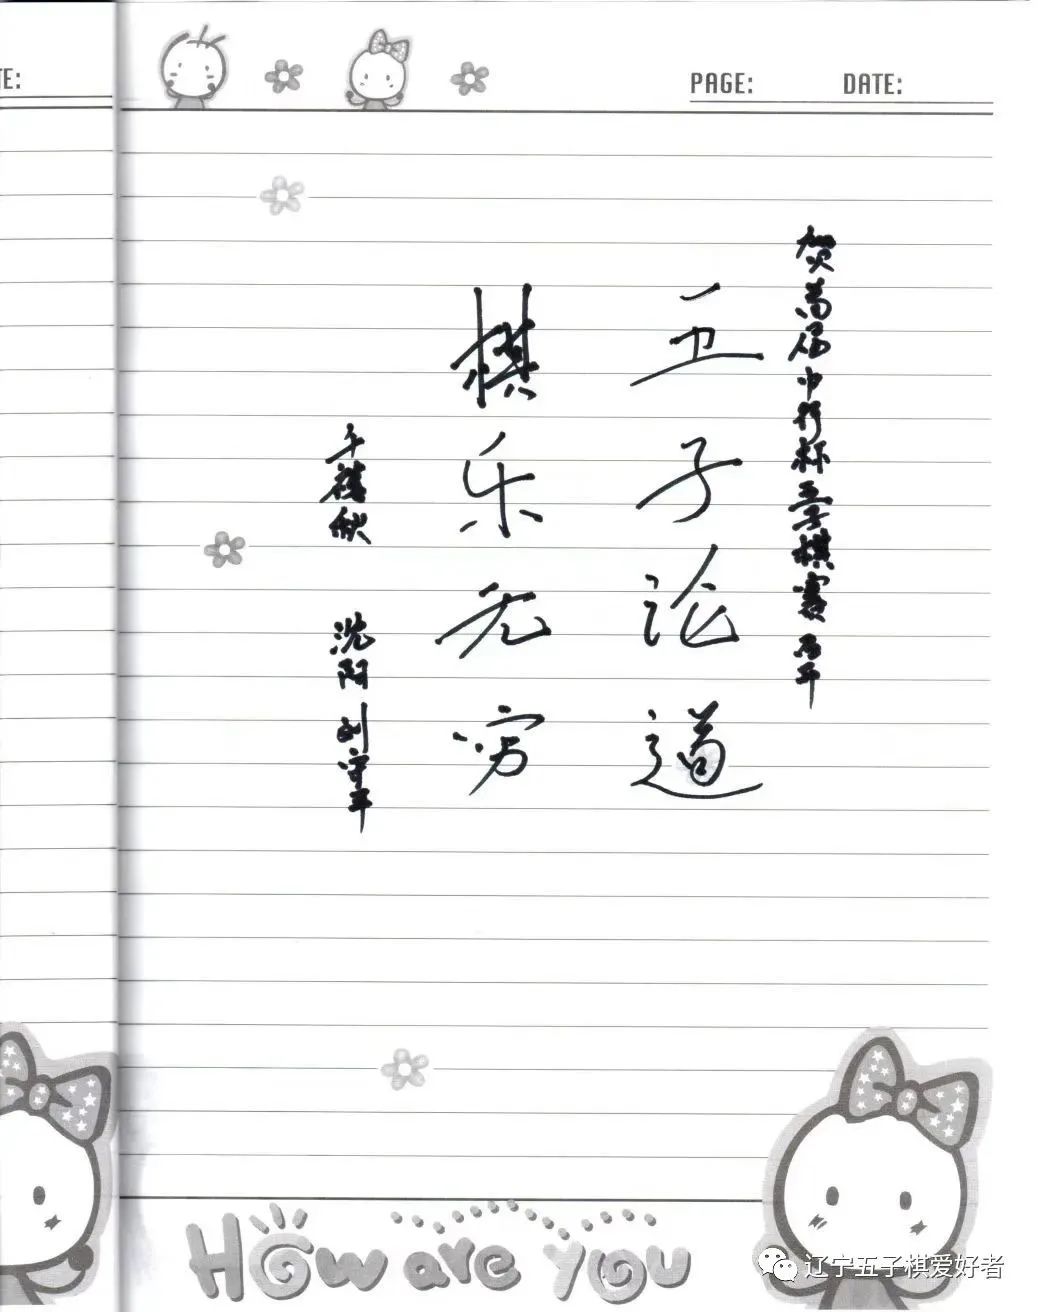 TE:
PAGE: DATE:
贺首届中行杯五子棋赛
五子论道
棋乐无穷
沈阳 刘守平
How are you
辽宁五子棋爱好者